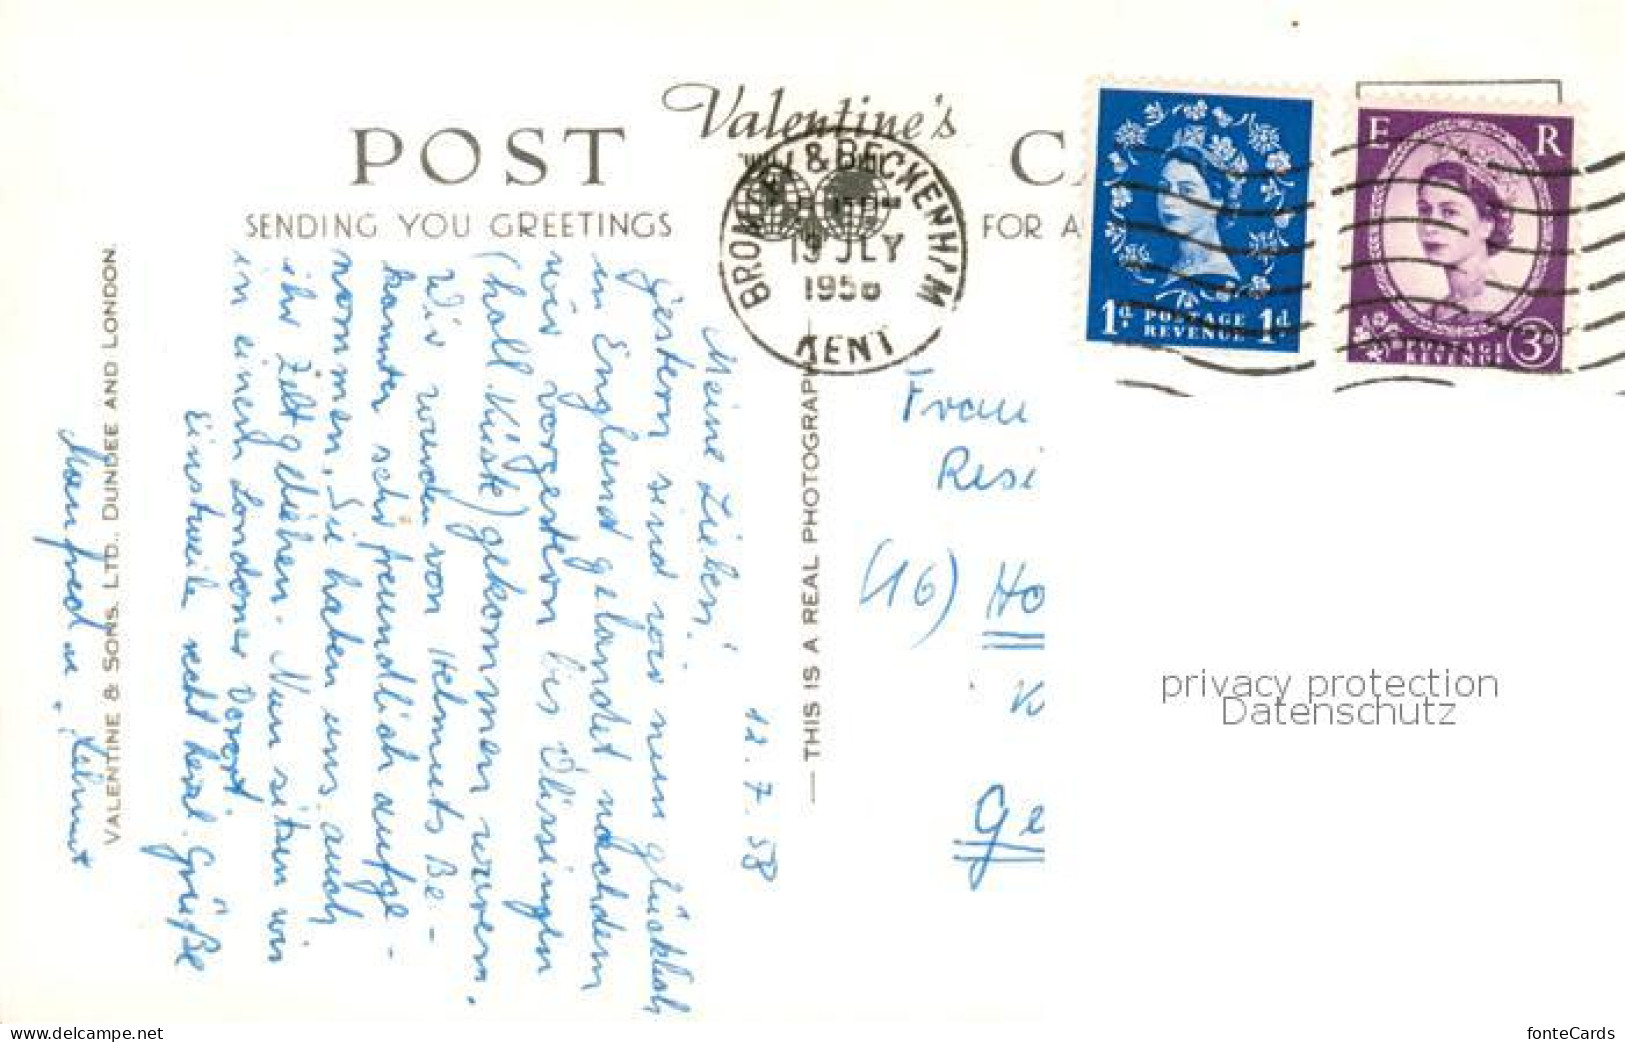 Valentine's
POST
CA
SENDING YOU GREETINGS
FOR A
BROMLEY & BECKENHAM
13 JLY
1958
KENT
1d. POSTAGE REVENUE 1d.
E R
3D
POSTAGE
REVENUE
12.7.58
Meine Lieben!
Gestern sind wir nun glücklich
in England gelandet nachdem
wir vorgestern bis Vlissingen
(holl. Küste) gekommen waren.
Wir wurden von Helmuts Be-
kannten sehr freundlich aufge-
nommen. Sie haben uns auch
ihr Zelt geliehen. Nun sitzen wir
in einem Londoner Vorort.
Einstweilen recht herzl. Grüße
Manfred u. Helmut
VALENTINE & SONS. LTD., DUNDEE AND LONDON.
— THIS IS A REAL PHOTOGRAPH
Frau
Resi
(16) Ho
Ge
privacy protection
Datenschutz
www.delcampe.net
fonteCards